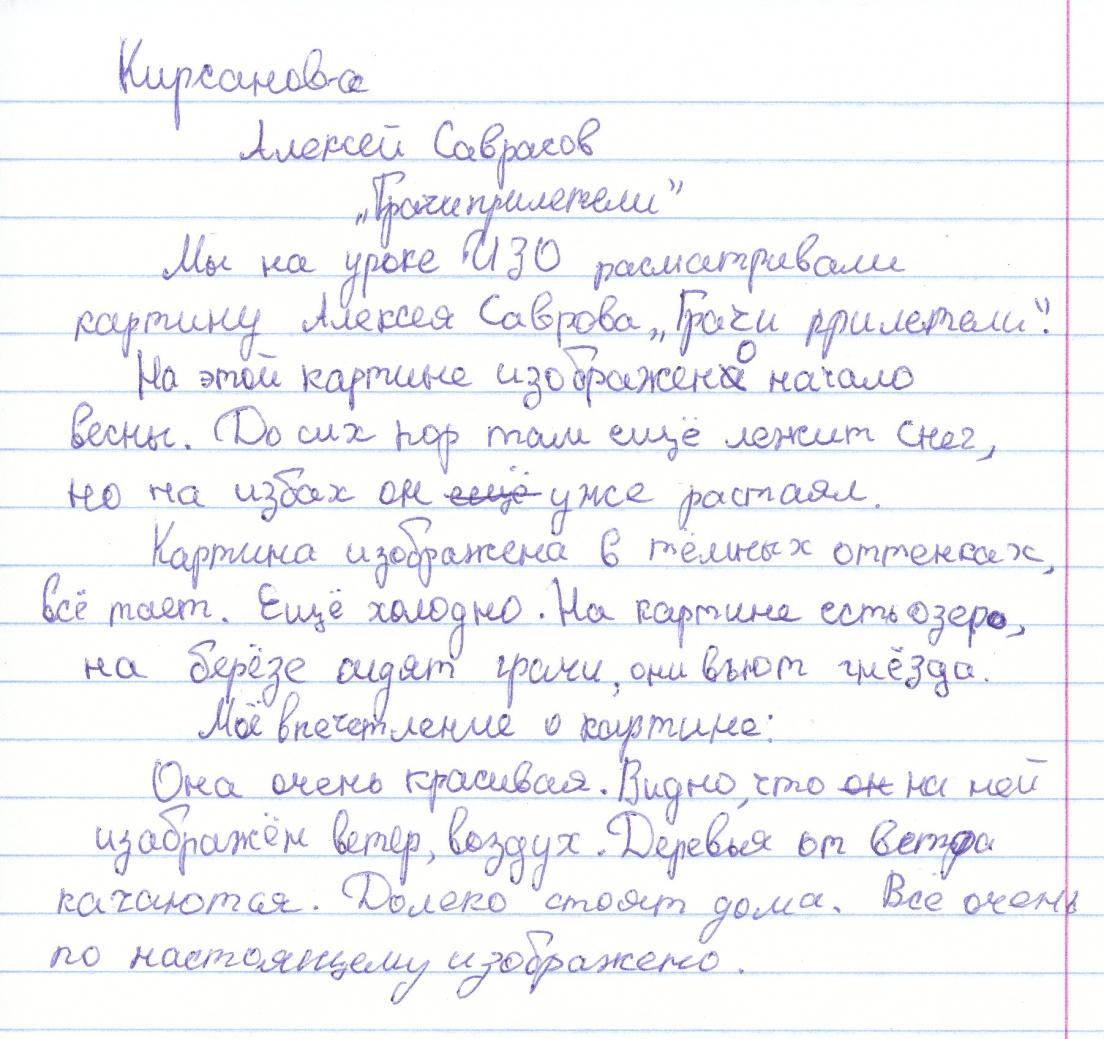 Кирсанова
Алексей Саврасов
„Грачи прилетели"
Мы на уроке ИЗО расматривали
картину Алексея Саврова „Грачи прилетели".
На этой картине изображено начало
весны. До сих пор там ещё лежит снег,
но на избах он ещё уже растаял.
Картина изображена в тёмных оттенках,
всё тает. Ещё холодно. На картине есть озеро,
на берёзе сидят грачи, они вьют гнёзда.
Моё впечетление о картине:
Она очень красивая. Видно, что он на ней
изабражён ветер, воздух. Деревья от ветра
качаются. Долеко стоят дома. Всё очень
по настоящему изображено.